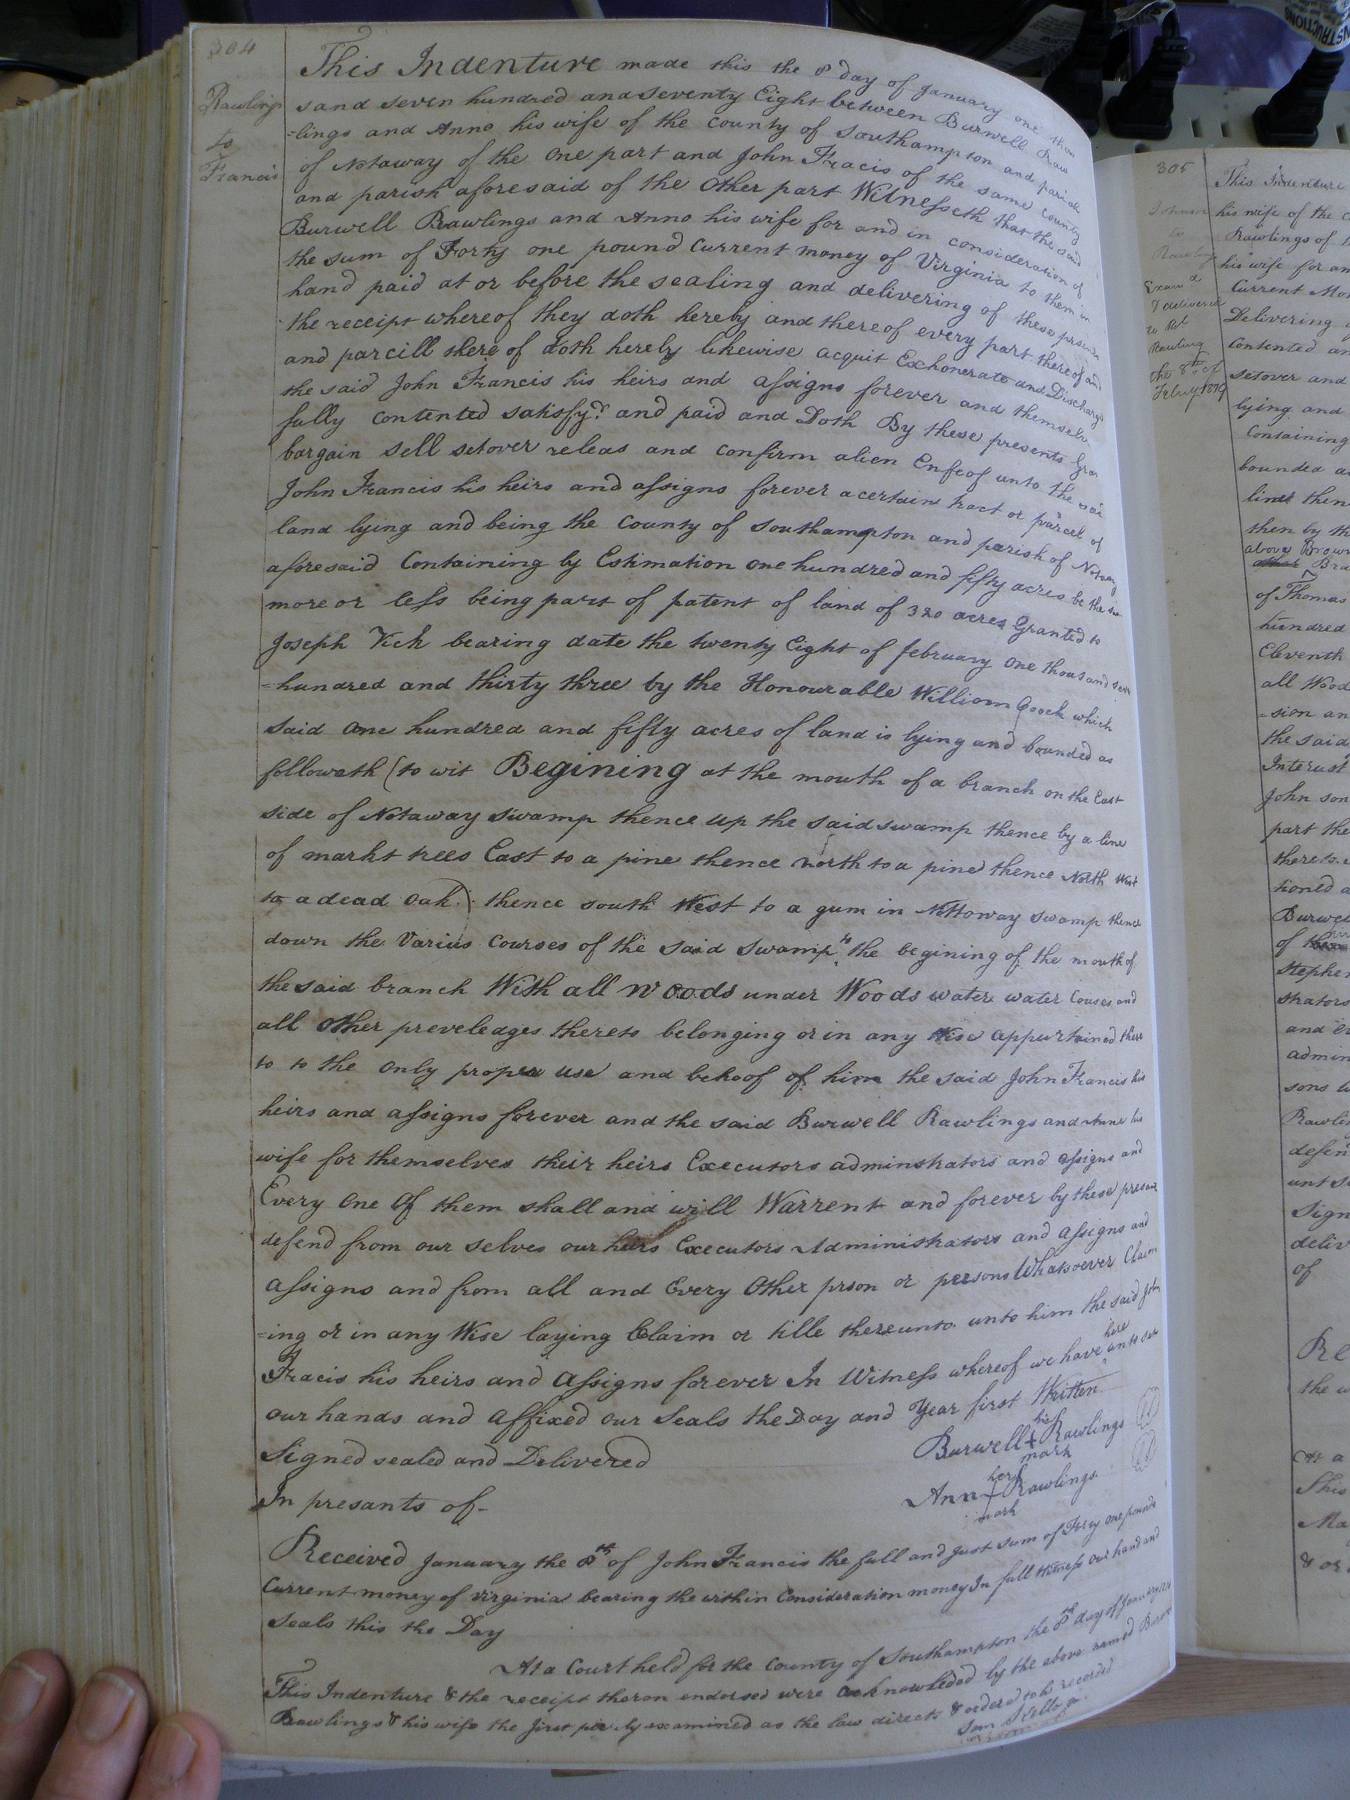 304
Rawlings
to
Francis
This Indenture made this the 8 day of January one thou
sand seven hundred and seventy Eight between Burwell Raw
=lings and Anno his wife of the County of Southampton and parish
of Notaway of the one part and John Fracis of the same County
and parish aforesaid of the Other part Witnesseth that the said
Burwell Rawlings and Anno his wife for and in consideration of
the sum of Forty one pound Current money of Virginia to them in
hand paid at or before the sealing and delivering of these presents
the receipt whereof they doth hereby and thereof every part thereof and
and parcill there of doth hereby likewise acquit Exchonerate and Discharge
the said John Francis his heirs and assigns forever and themselv
fully contented satisfy'd and paid and Doth By these presents Gra
bargain sell setover releas and confirm alien Enfeof unto the sai
John Francis his heirs and assigns forever a certain tract or parcel of
land lying and being the County of Southampton and parish of Notway
aforesaid Containing by Estimation one hundred and fifty acres be the sa
more or less being part of patent of land of 320 acres Granted to
Joseph Vick bearing date the twenty Eight of february one thousand seve
=hundred and thirty three by the Honourable William Gooch which
said one hundred and fifty acres of land is lying and bounded as
followeth (to wit Begining at the mouth of a branch on the East
side of Notaway swamp thence up the said swamp thence by a line
of markt trees East to a pine thence north to a pine thence North West
to a dead Oak) thence south West to a gum in Nottoway swamp thence
down the Varius Courses of the said swamp to the begining of the mouth of
the said branch With all woods under Woods water water Couses and
all other preveledges thereto belonging or in any Wise appurtained there
to to the only proper use and behoof of him the said John Francis his
heirs and assigns forever and the said Burwell Rawlings and Anne his
wife for themselves their heirs Executors adminstrators and assigns and
Every One Of them shall and will Warrent and forever by these presents
defend from our selves our heirs Executors Administrators and assigns and
assigns and from all and Every Other prson or persons Whatsoever Claim
=ing or in any Wise laying Claim or title thereunto unto him the said John
Fracis his heirs and Assigns forever In Witness whereof we have here unto set
our hands and affixed our Seals the Day and Year first Written
Signed sealed and Delivered
In presants of-
Burwell his + mark Rawlings
Ann her + mark Rawlings
Received January the 8th of John Francis the full and just sum of Forty one pounds
Current money of virginia bearing the within Consideration money In full Witness our hand and
Seals this the Day
At a Court held for the County of Southampton the 8th day of January
This Indenture & the receipt theron endorsed were acknowledged by the above named Burwell
Rawlings & his wife she first priv.ly examined as the law directs & ordered to be recorded
305
Johnson
to
Rawlings
Exam'd
& delivered
to
Rawling
the 8th of
Feb.y 1819
This Indenture
his wife of the C
Rawlings of
his wife for an
Current Mon
Delivering
Contented an
setover and
lying and
Containing
bounded a
line then
then by th
above Brow
of Thomas
hundred
Eleventh
all Wood
=sion an
the said
Interest
John son
part the
thereto
tioned a
Burwe
of
Stephen
strators
and
admin
sons
Rawlin
defen
unt
Sign
deliv
of
Re
the w
At a
This
Ma
& or